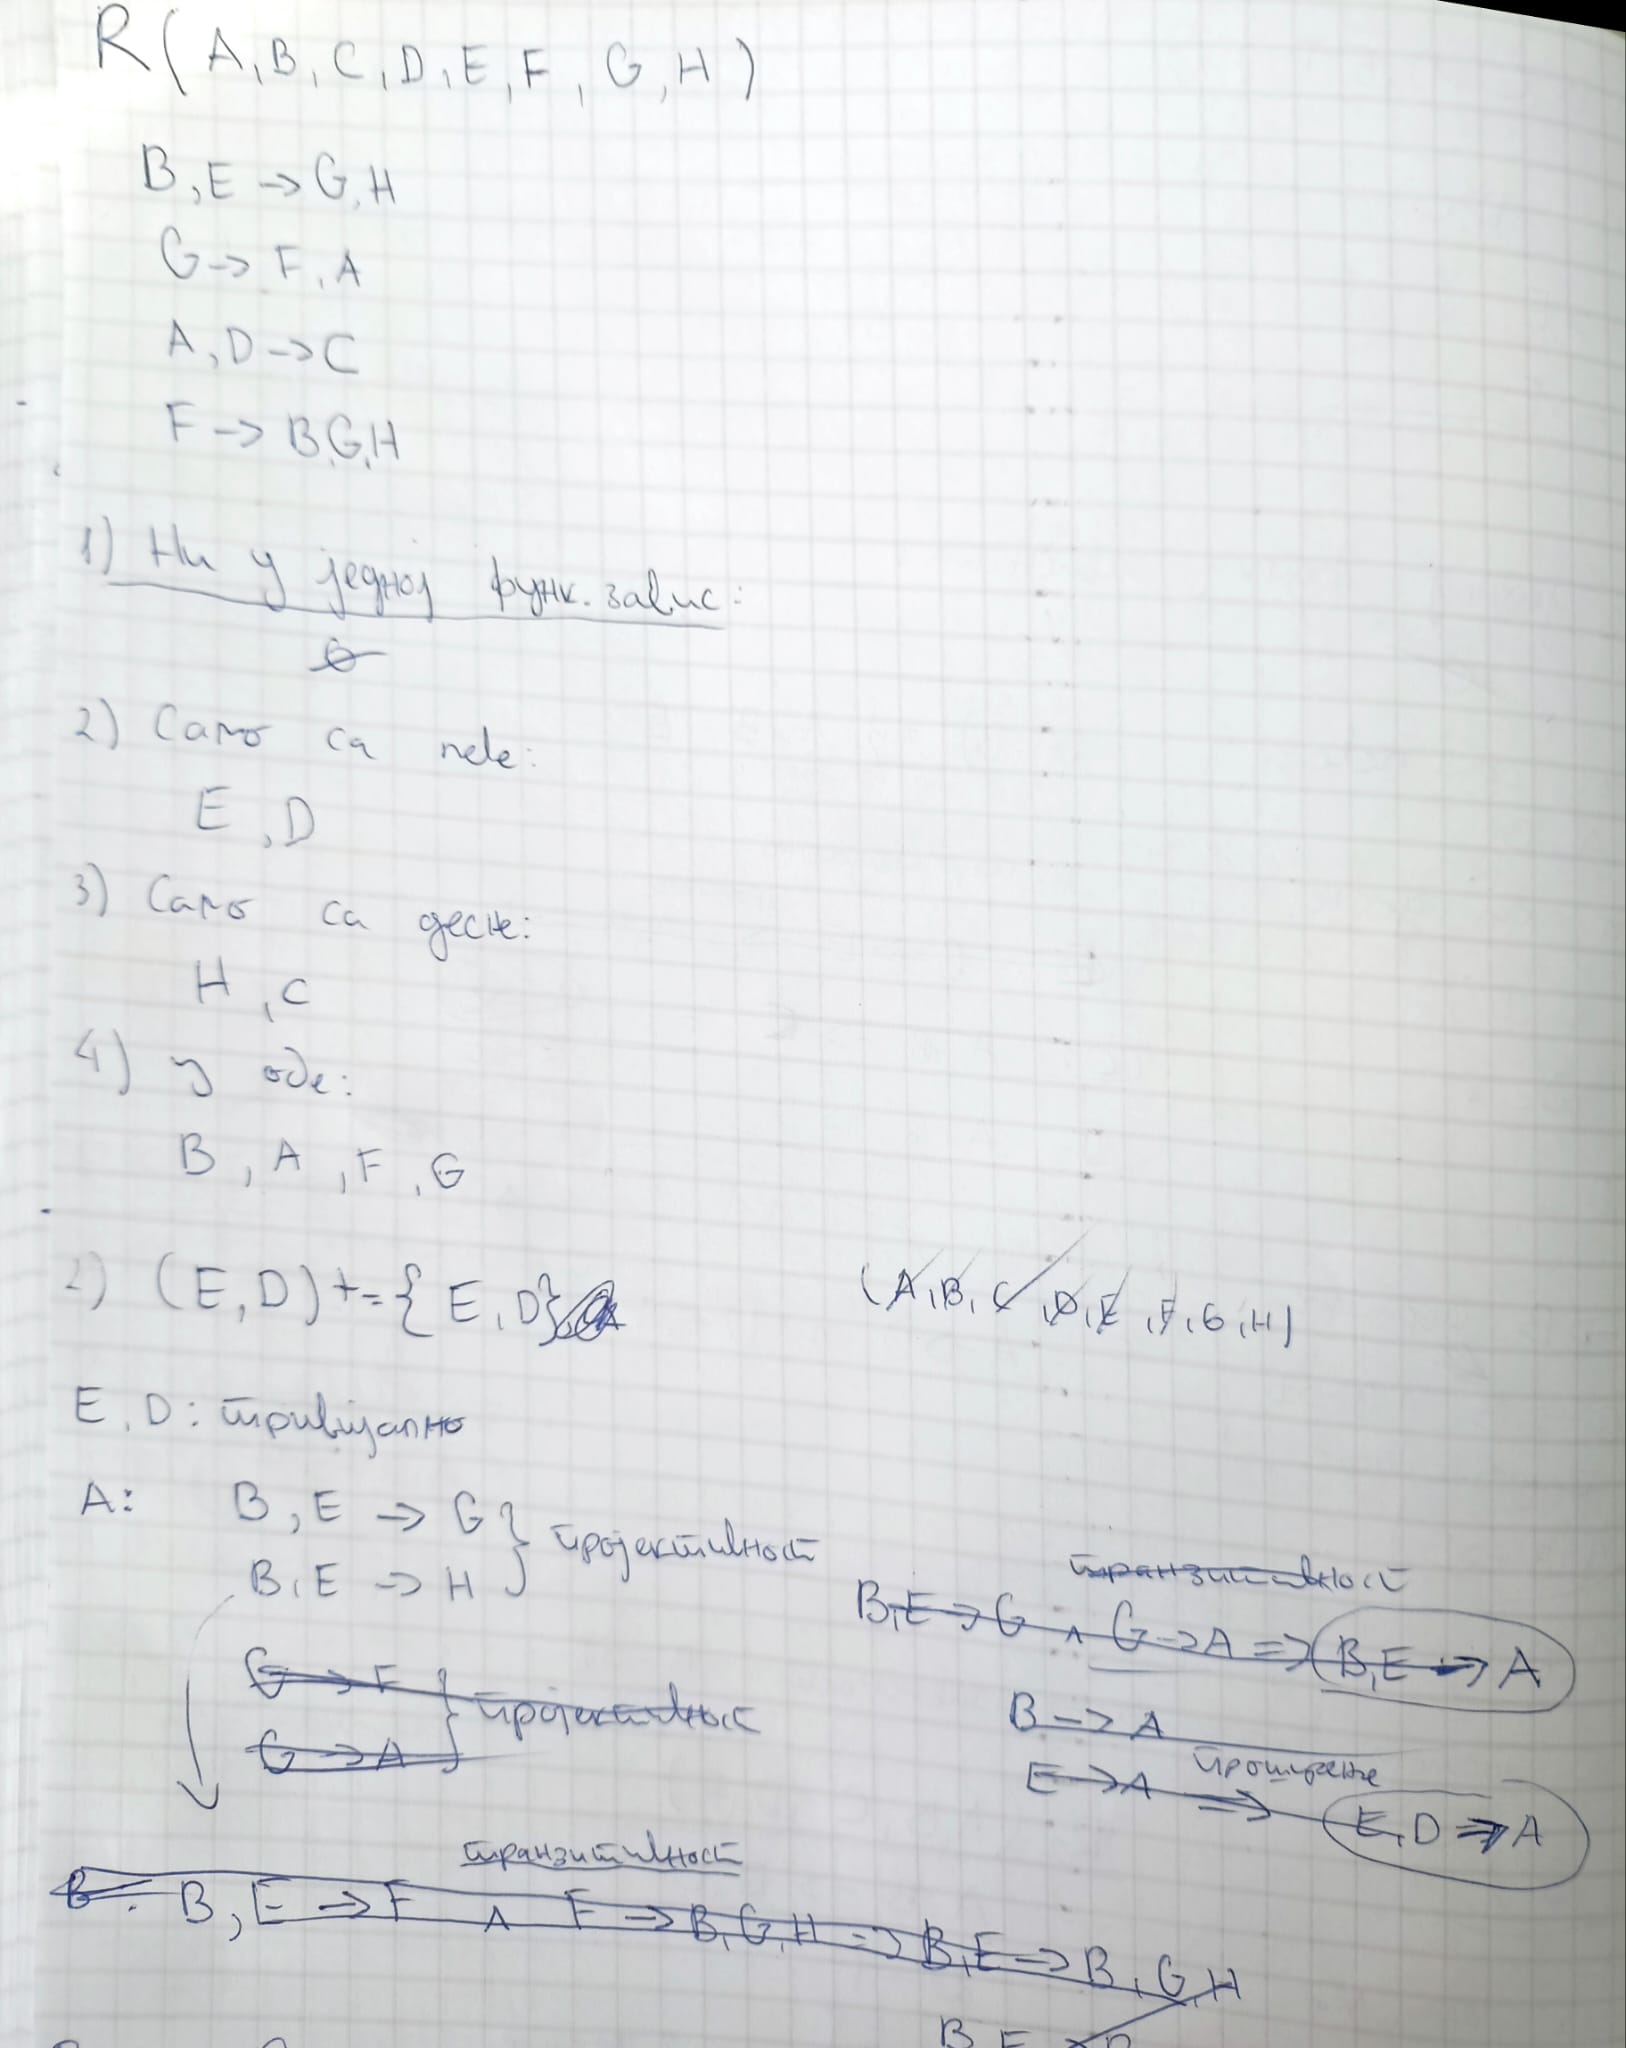 R(A,B,C,D,E,F,G,H)
B,E -> G,H
G -> F,A
A,D -> C
F -> B,G,H
1) Ни у једној функ. завис:
∅
2) Само са леве:
E,D
3) Само са десне:
H,C
4) у обе:
B,A,F,G
2) (E,D)+={E,D}
(A,B,C,D,E,F,G,H)
E,D: тривијално
A: B,E -> G } пројективност
B,E -> H
транзитивност
B,E -> G ∧ G -> A => B,E -> A
G -> F } пројективност
G -> A
B -> A
E -> A => проширење E,D => A
транзитивност
B. B,E -> F ∧ F -> B,G,H => B,E -> B,G,H
B,E